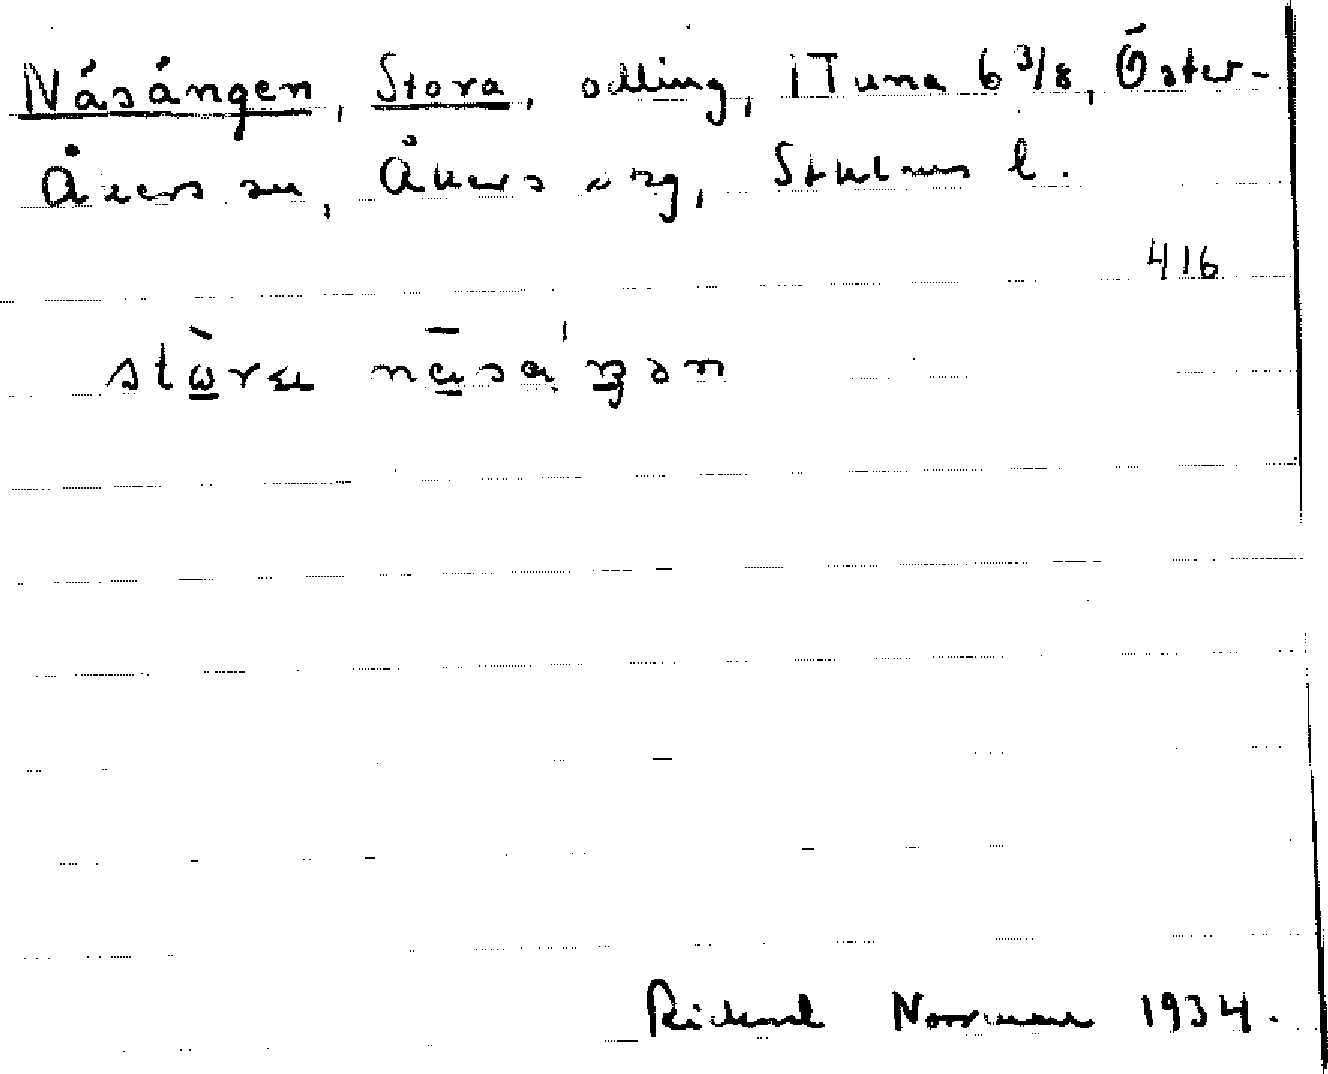 Näsängen, Stora, odling, i Tuna 6 3/8, Öster-
Åkers sn, Åkers srg, Sthlms l.
416
Richard Norrman 1934.